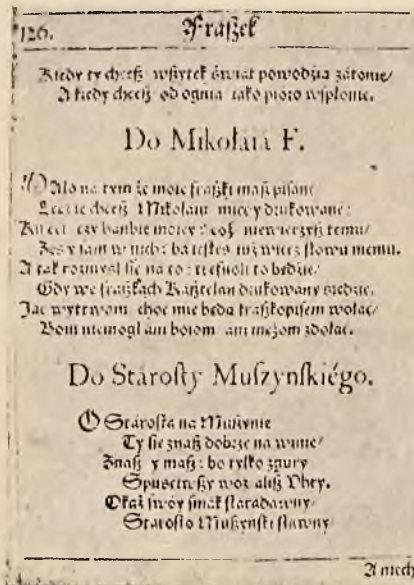 126.
Fraszek
Kiedy ty chcesz wszytek świat powodzią zatonie/
A kiedy chcesz od ognia iako pioro wspłonie.
Do Mikołaia F.
Mało na tym że moie fraszki masz pisane
Lecz ie chcesz Mikołaiu mieć y drukowane:
czy hańbie moiey: coż niewierzysz temu/
Żeś y sam w nich: ba iesteś iuż wierz słowu memu.
A tak rozmyśl się na to: trefnoli to będzie/
Gdy we fraszkach Kasztelan drukowany siędzie.
Iać wytrwam choć mię będą fraszkopisem wołać/
Bom niemogł ani boiom ani mężom zdołać.
Do Starosty Muszynskiégo.
O Starosta na Muszynie
Ty się znasz dobrze na winie/
Znasz y masz: bo tylko z gury
Spuściwszy woz aliż Uhry.
Okaż swóy smak staradawny
Starosto Muszyński sławny
A niech